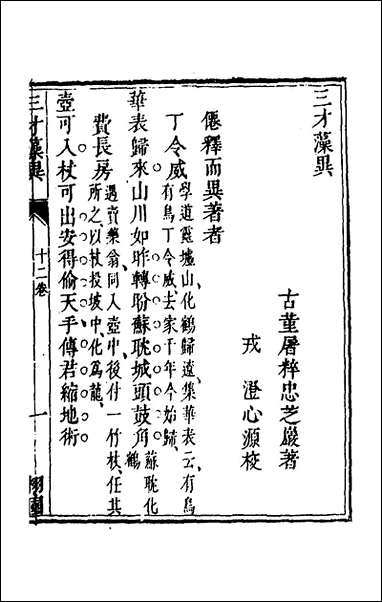 三才藻異
古董屠粹忠芝巖著
戎 澄心源校
僊釋而異著者
丁令威
學道靈墟山、化鶴歸遼、集華表云、有鳥
有鳥丁令威去家千年今始歸、
華表歸來山川如昨轉盼蘇耽城頭鼓角
蘇耽化
鶴、
費長房
遇賣藥翁、同入壺中、後付一竹杖、任其
所之、以杖投坡中、化爲龍、
壺可入杖可出安得偷天手傳君縮地術
三才藻異
十二卷
一